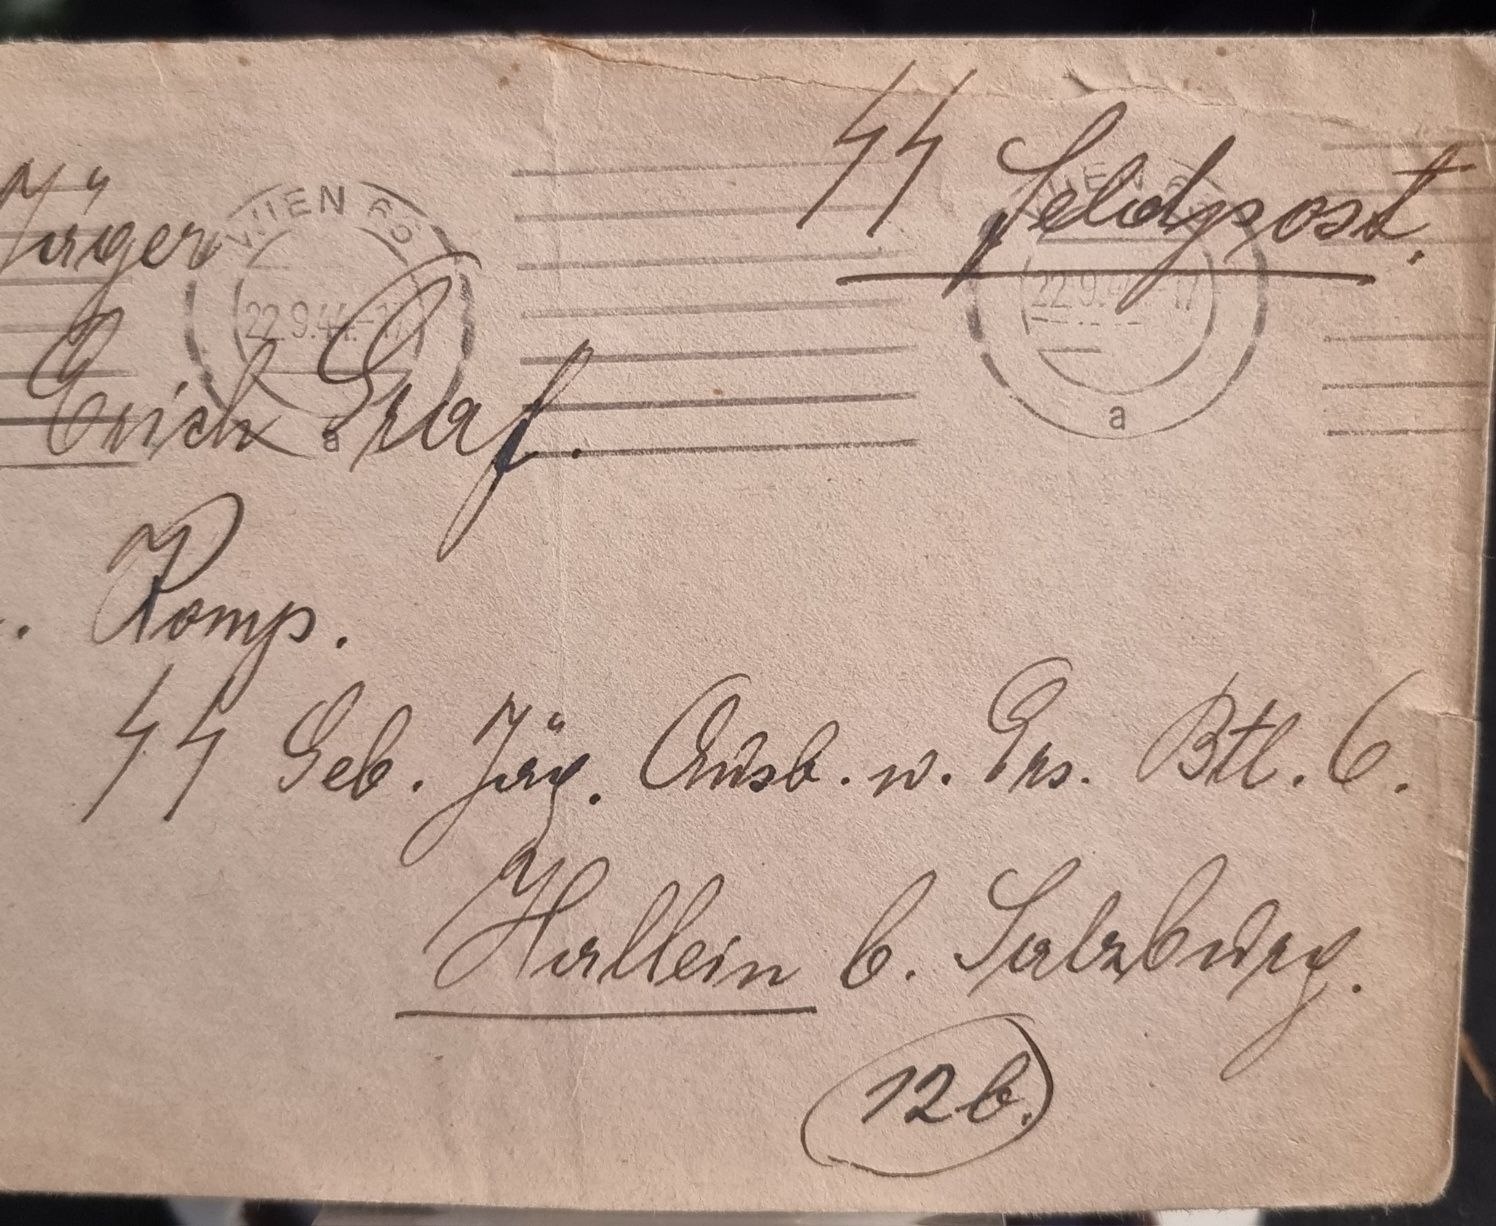 SS Feldpost.
Jäger
WIEN 65
22.9.44.-17
a
WIEN 65
22.9.44.-17
a
Erich Graf.
. Komp.
SS Geb. Jäg. Ausb. u. Ers. Btl. 6.
Hallein b. Salzburg.
12b.